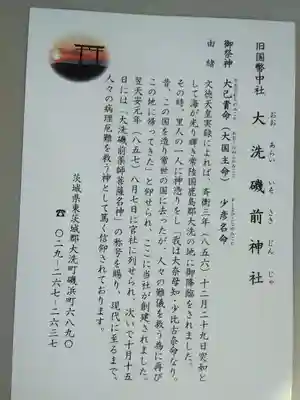 旧国幣中社 大洗磯前神社
おお あらい いそ さき じん じゃ
御祭神 大己貴命(大国主命) 少彦名命
由緒 文徳天皇実録によれば、斉衡三年(八五六)十二月二十九日突如と
して海が光り輝き常陸国鹿島郡大洗の地に御降臨をされました。
その時、里人の一人に神憑りをし「我は大奈母知・少比古奈命なり。
昔、この国を造り常世の国に去ったが、人々の難儀を救う為に再び
この地に帰ってきた」と仰せられ、ここに当社が創建されました。
翌天安元年(八五七)八月七日に官社に列せられ、次いで十月十五
日には「大洗磯前薬師菩薩名神」の称号を賜り、現代に至るまで、
人々の病理厄難を救う神として篤く信仰されております。
茨城県東茨城郡大洗町磯浜町六八九〇
☎ 〇二九-二六七-二六三七